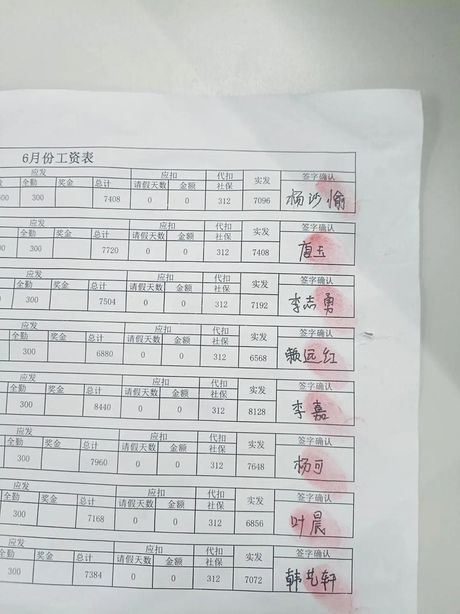 6月份工资表
应发 应扣 代扣 实发 签字确认
全勤 奖金 总计 请假天数 金额 社保
300 7408 0 0 312 7096 杨沙愉
应发 应扣 代扣 实发 签字确认
全勤 奖金 总计 请假天数 金额 社保
300 7720 0 0 312 7408 唐玉
应发 应扣 代扣 实发 签字确认
全勤 奖金 总计 请假天数 金额 社保
300 7504 0 0 312 7192 李志勇
应发 应扣 代扣 实发 签字确认
全勤 奖金 总计 请假天数 金额 社保
300 6880 0 0 312 6568 赖远红
应发 应扣 代扣 实发 签字确认
全勤 奖金 总计 请假天数 金额 社保
300 8440 0 0 312 8128 李嘉
应发 应扣 代扣 实发 签字确认
全勤 奖金 总计 请假天数 金额 社保
300 7960 0 0 312 7648 杨可
应发 应扣 代扣 实发 签字确认
全勤 奖金 总计 请假天数 金额 社保
300 7168 0 0 312 6856 叶晨
应发 应扣 代扣 实发 签字确认
全勤 奖金 总计 请假天数 金额 社保
300 7384 0 0 312 7072 韩艺轩